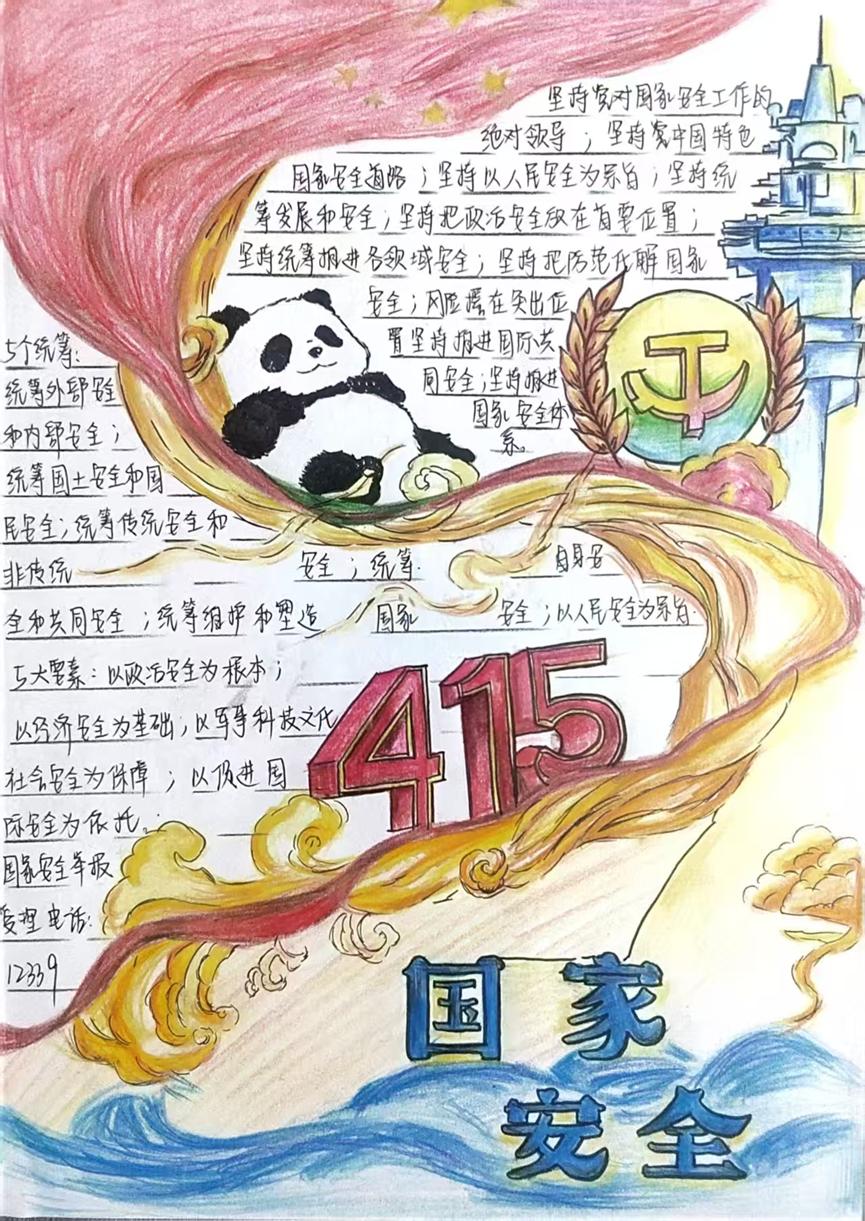 坚持党对国家安全工作的
绝对领导；坚持党中国特色
国家安全道路；坚持以人民安全为宗旨；坚持统
筹发展和安全；坚持把政治安全放在首要位置；
坚持统筹推进各领域安全；坚持把防范化解国家
安全；风险摆在突出位
置坚持推进国际共
同安全；坚持推进
国家安全体
系
5个统筹：
统筹外部安全
和内部安全；
统筹国土安全和国
民安全；统筹传统安全和
非传统 安全；统筹 自身安
全和共同安全；统筹维护和塑造 国家 安全；以人民安全为宗旨.
5大要素：以政治安全为根本；
以经济安全为基础；以军事科技文化
社会安全为保障；以促进国
际安全为依托。
国家安全举报
受理电话：
12339
415
国家
安全